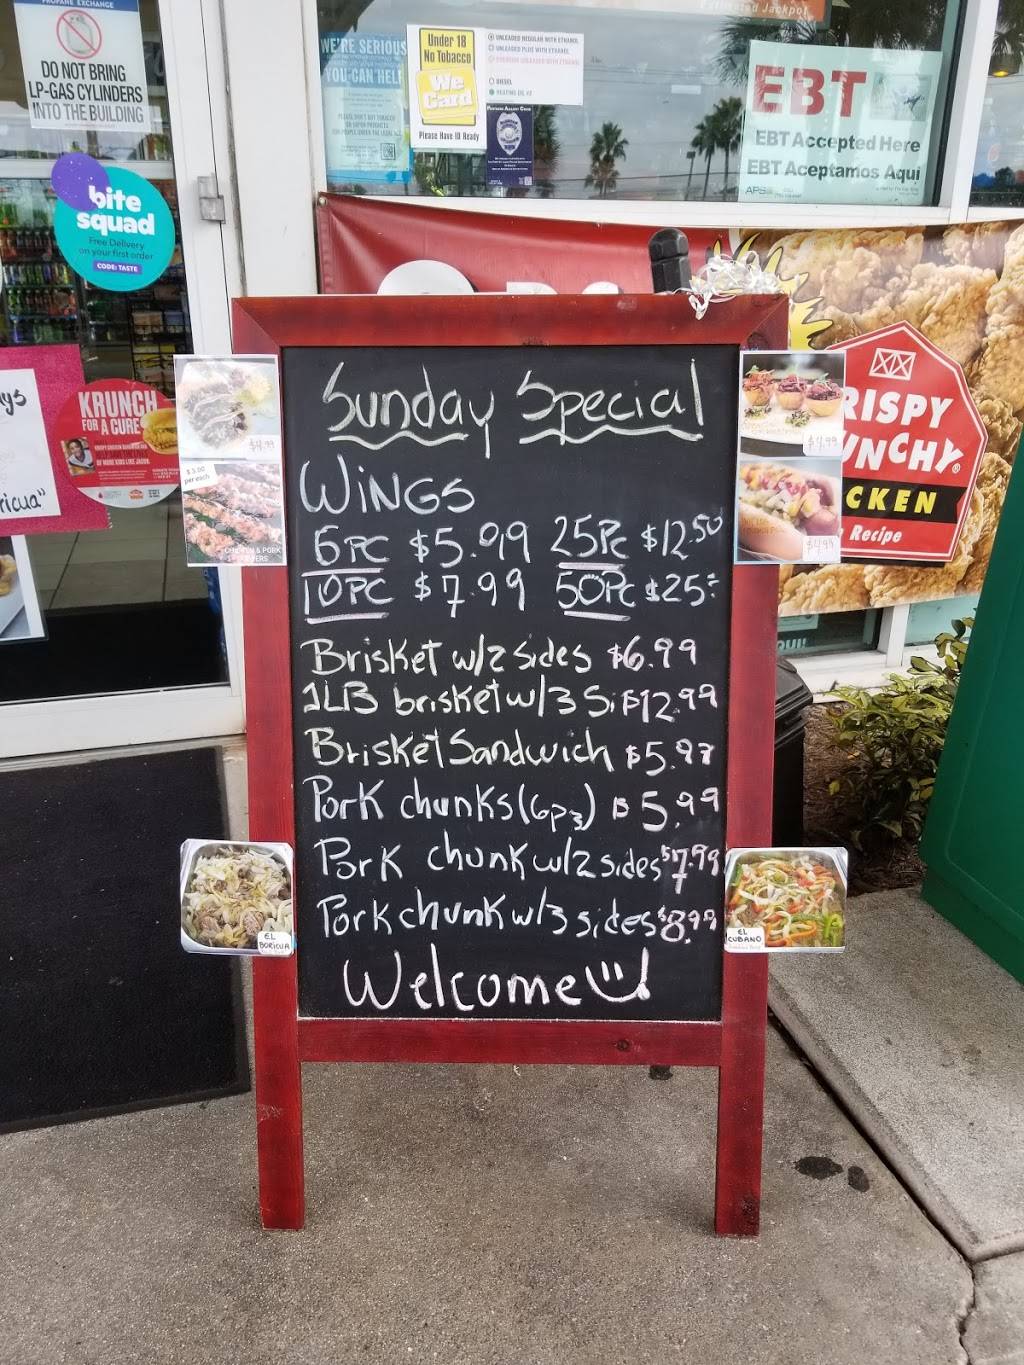 PROPANE EXCHANGE
DO NOT BRING
LP-GAS CYLINDERS
INTO THE BUILDING
bite
squad
Free Delivery
on your first order
CODE: TASTE
KRUNCH
FOR A CURE
ricua"
WE'RE SERIOUS
YOU CAN HELP
Under 18
No Tobacco
We
Card
Please Have ID Ready
UNLEADED REGULAR WITH ETHANOL
UNLEADED PLUS WITH ETHANOL
PREMIUM UNLEADED WITH ETHANOL
DIESEL
Estimated Jackpot
EBT
EBT Accepted Here
EBT Aceptamos Aquí
APS
RISPY
UNCHY®
CKEN
Recipe
$4.99
$3.00
per each
CHICKEN & PORK
$4.99
$4.99
Sunday Special
WINGS
6PC $5.99 25Pc $12.50
10PC $7.99 50Pc $25
Brisket w/2 sides $6.99
1LB brisket w/3 Si $12.99
Brisket Sandwich $5.97
Pork chunks (6pz) $5.99
Pork chunk w/2 sides $7.99
Pork chunk w/3 sides $8.99
Welcome!
EL
BORICUA
EL
CUBANO